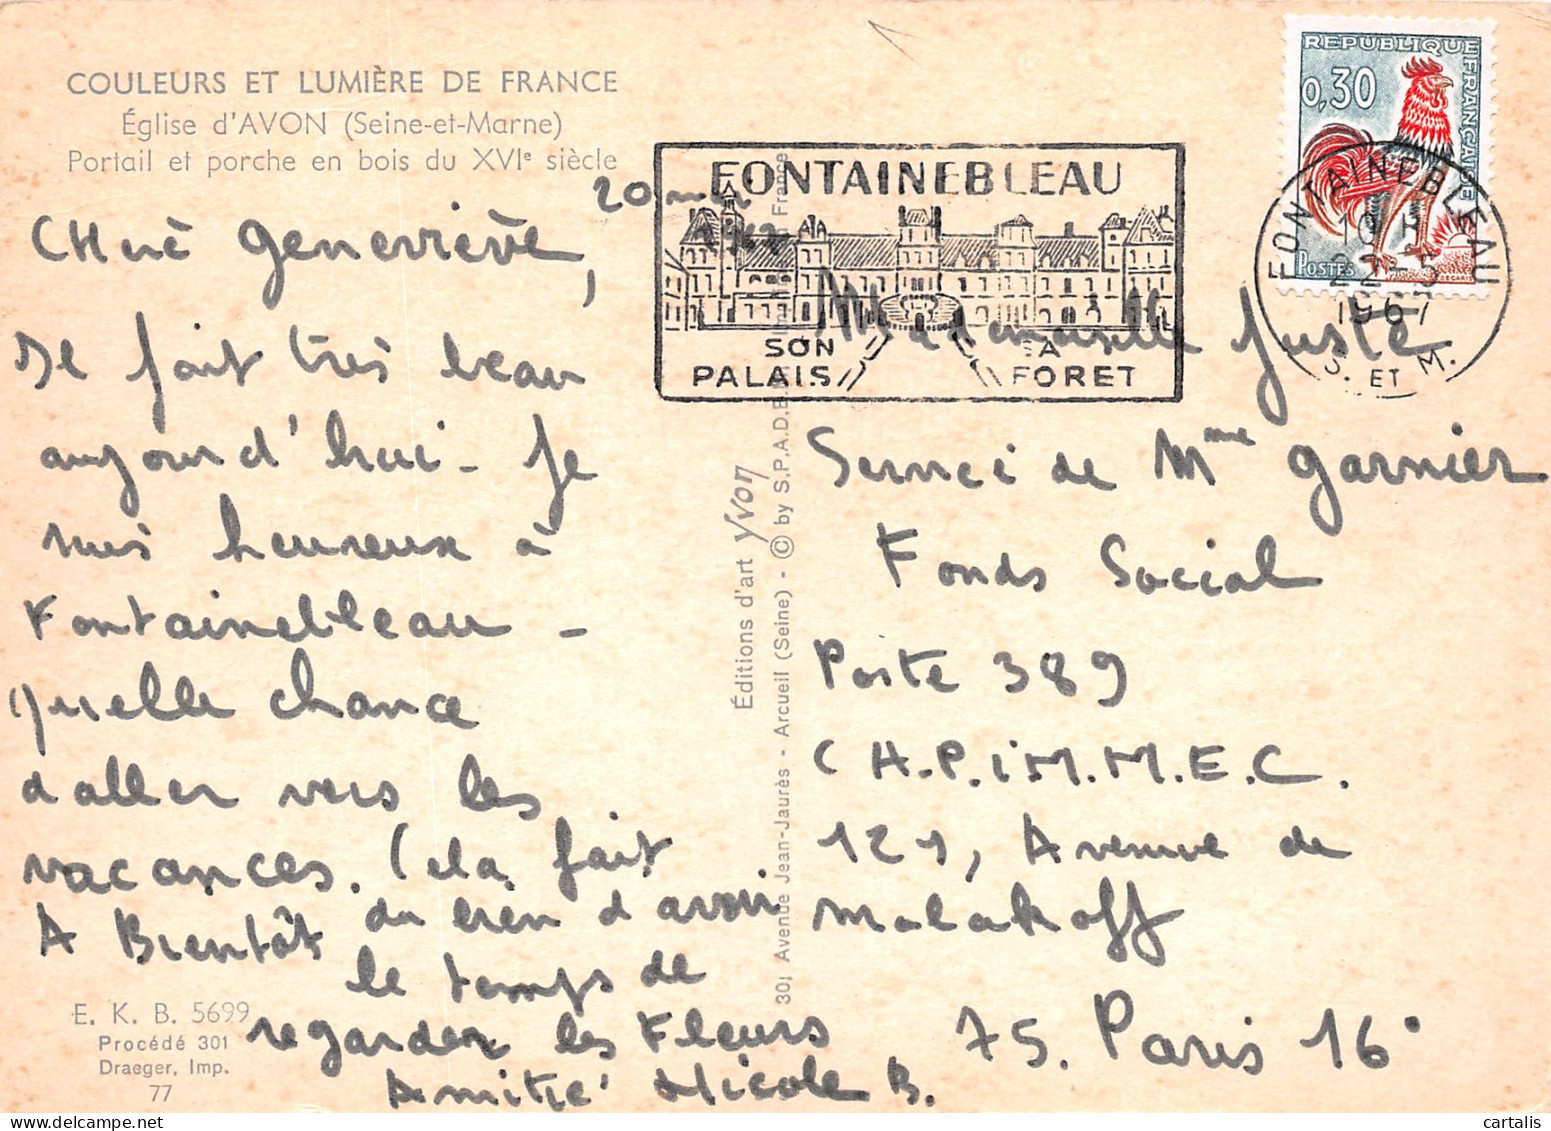 COULEURS ET LUMIÈRE DE FRANCE
Église d'AVON (Seine-et-Marne)
Portail et porche en bois du XVIe siècle
20 mai
CHerè Geneviève,
Il fait très beau
aujourd'hui - Je
suis heureux à
Fontainebleau -
quelle chance
d'aller vers les
vacances. Cela fait
du bien d'avoir
le temps de
regarder les Fleurs
A Bientôt
Amitié Nicole B.
E. K. B. 5699
Procédé 301
Draeger, Imp.
77
Éditions d'art Yvon
301 Avenue Jean-Jaurès - Arcueil (Seine) - © by S.P.A.D.E.M.
France
FONTAINEBLEAU
SON
PALAIS
SA
FORET
REPUBLIQUE FRANÇAISE
0,30
POSTES
FONTAINEBLEAU
10 H
22-5
1967
S. ET M.
Mademoiselle Juste
Service de Mme Garnier
Fonds Social
Poste 389
C H.P.iM.M.E.C.
121, Avenue de
Malakoff
75. Paris 16°
cartalis